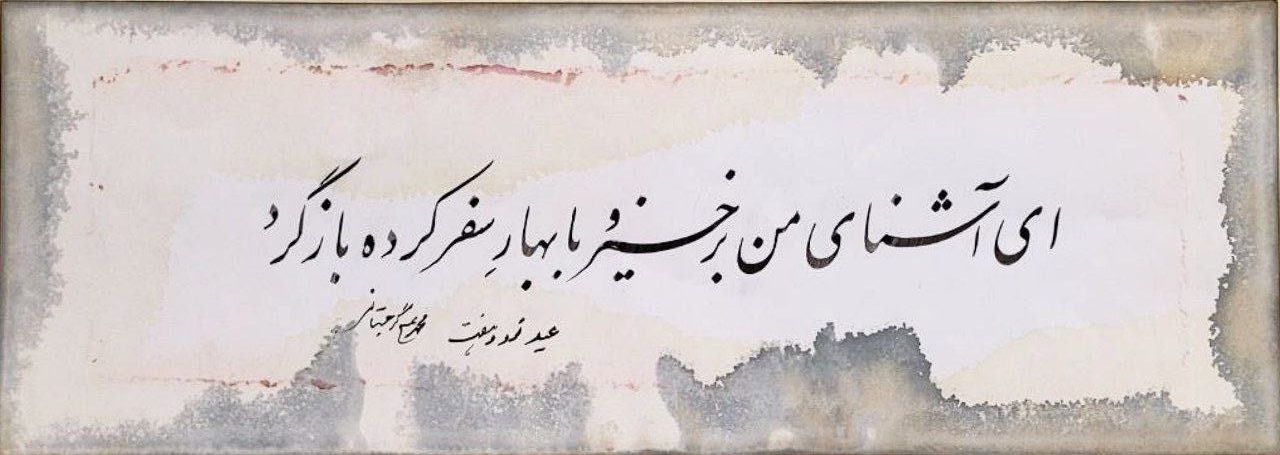 ای آشنای من برخیز و با بهارِ سفر کرده بازگرد
عید نود و هفت